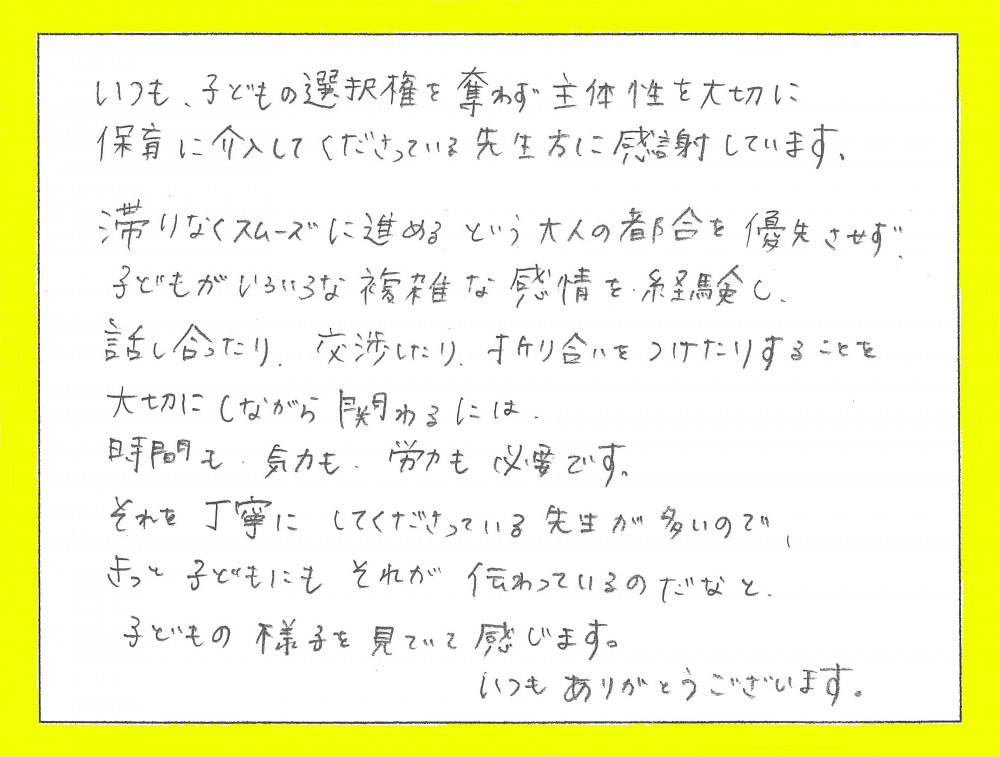 いつも、子どもの選択権を奪わず主体性を大切に
保育に介入してくださっている先生方に感謝しています。
滞りなくスムーズに進めるという大人の都合を優先させず、
子どもがいろいろな複雑な感情を経験し、
話し合ったり、交渉したり、折り合いをつけたりすることを
大切にしながら関わるには、
時間も、気力も、労力も必要です。
それを丁寧にしてくださっている先生が多いので、
きっと子どもにもそれが伝わっているのだなと、
子どもの様子を見ていて感じます。
いつもありがとうございます。